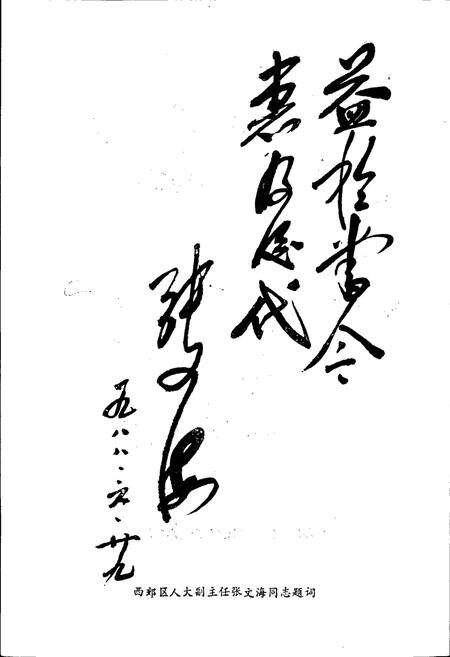 益於当今
惠及后代
张文海
一九八八·六·廿九
西郊区人大副主任张文海同志题词